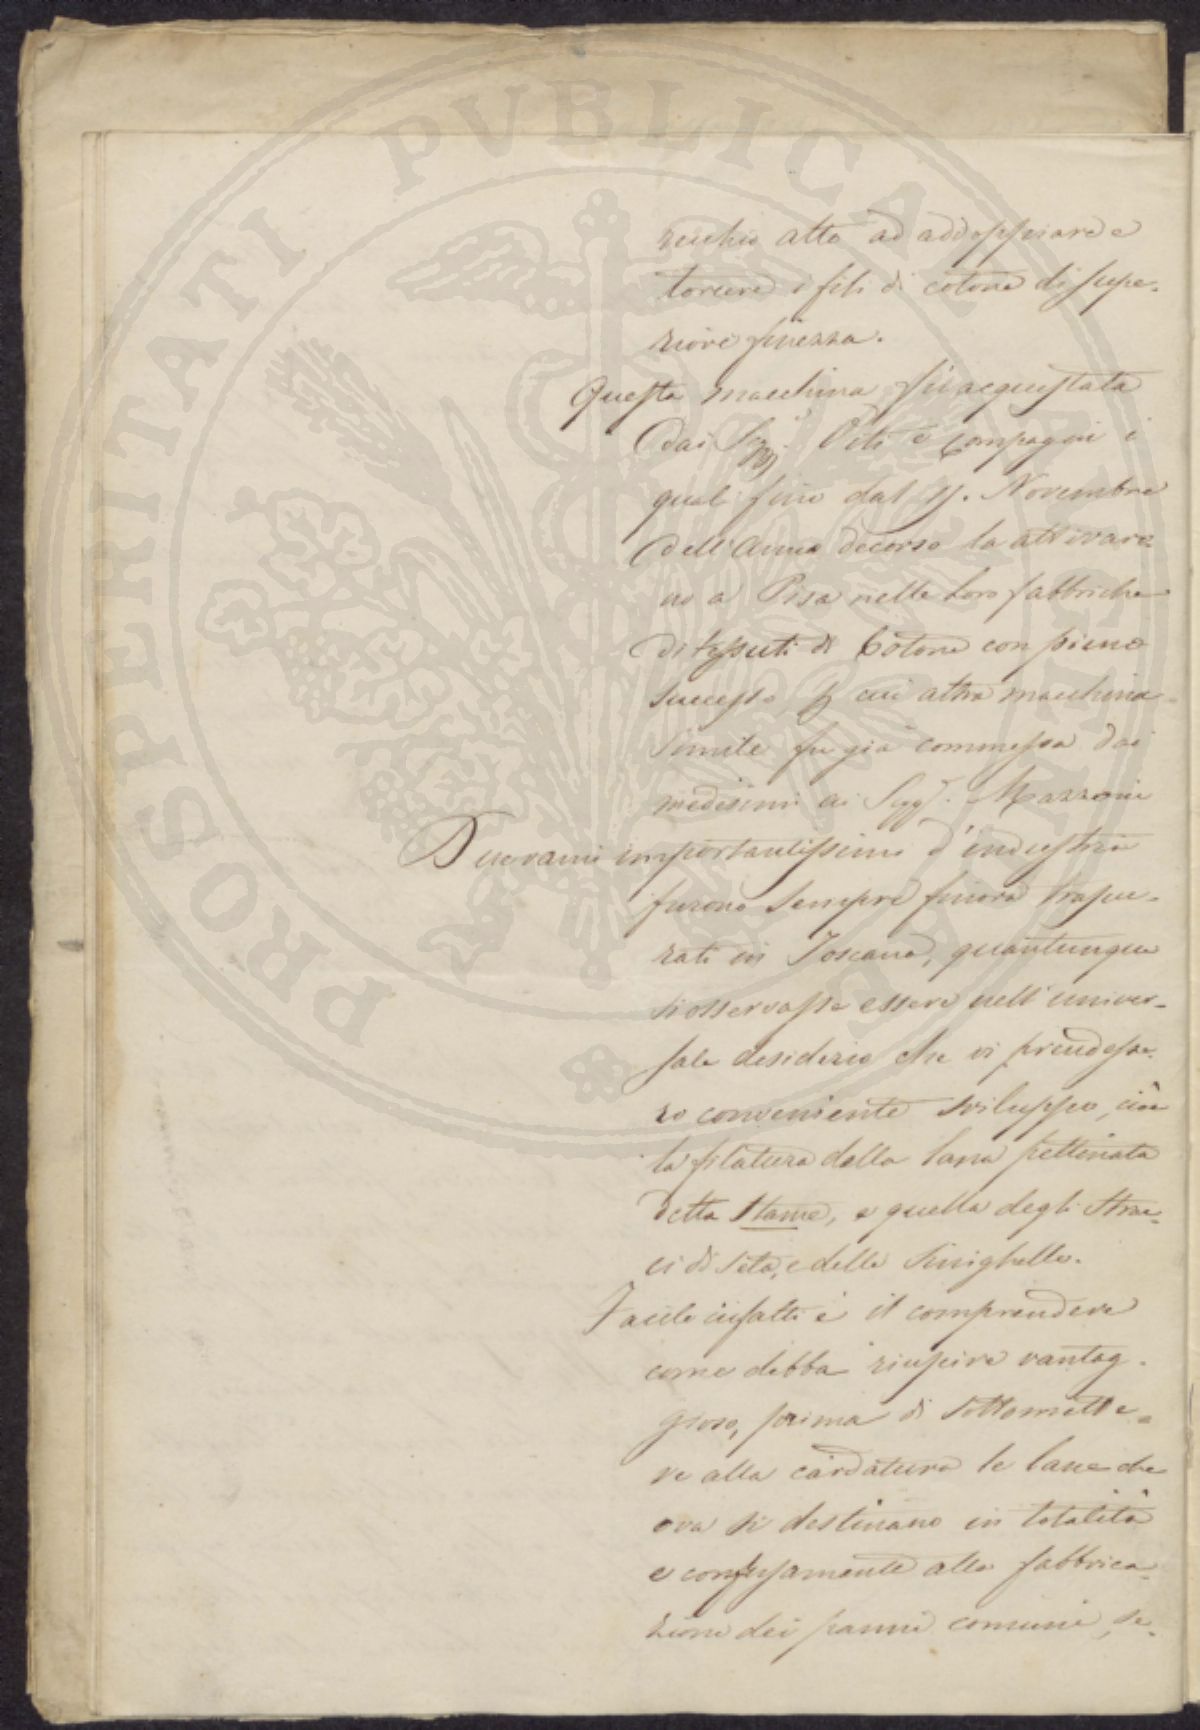 recchio atto ad addoppiare e
torcere i fili di cotone di supe-
riore finezza.
Questa macchina fu acquistata
dai Sigg.ri Viti e Compagni i
quali fino dal Novembre
dell'Anno decorso la attivaro-
no a Pisa nelle Loro fabbriche
di tessuti di Cotone con pieno
successo, cui altra macchina
simile fu già commessa dai
medesimi ai Sigg.ri Mazzoni
Due rami importantissimi d'industria
furono sempre finora trascu-
rati in Toscana, quantunque
si osservasse essere nell'univer-
sale desiderio che vi prendesse-
ro conveniente sviluppo, cioè
la filatura della lana pettinata
detta Stame, e quella degli Strac-
ci di Seta, e delle Sinighelle.
Facile infatti è il comprendere
come debba riuscire vantag-
gioso, prima di sottomette-
re alla cardatura le lane che
ora si destinano in totalità
e confusamente alla fabbrica-
zione dei panni comuni, se-
PROSPERITATI PVBLICAE AVGENDAE